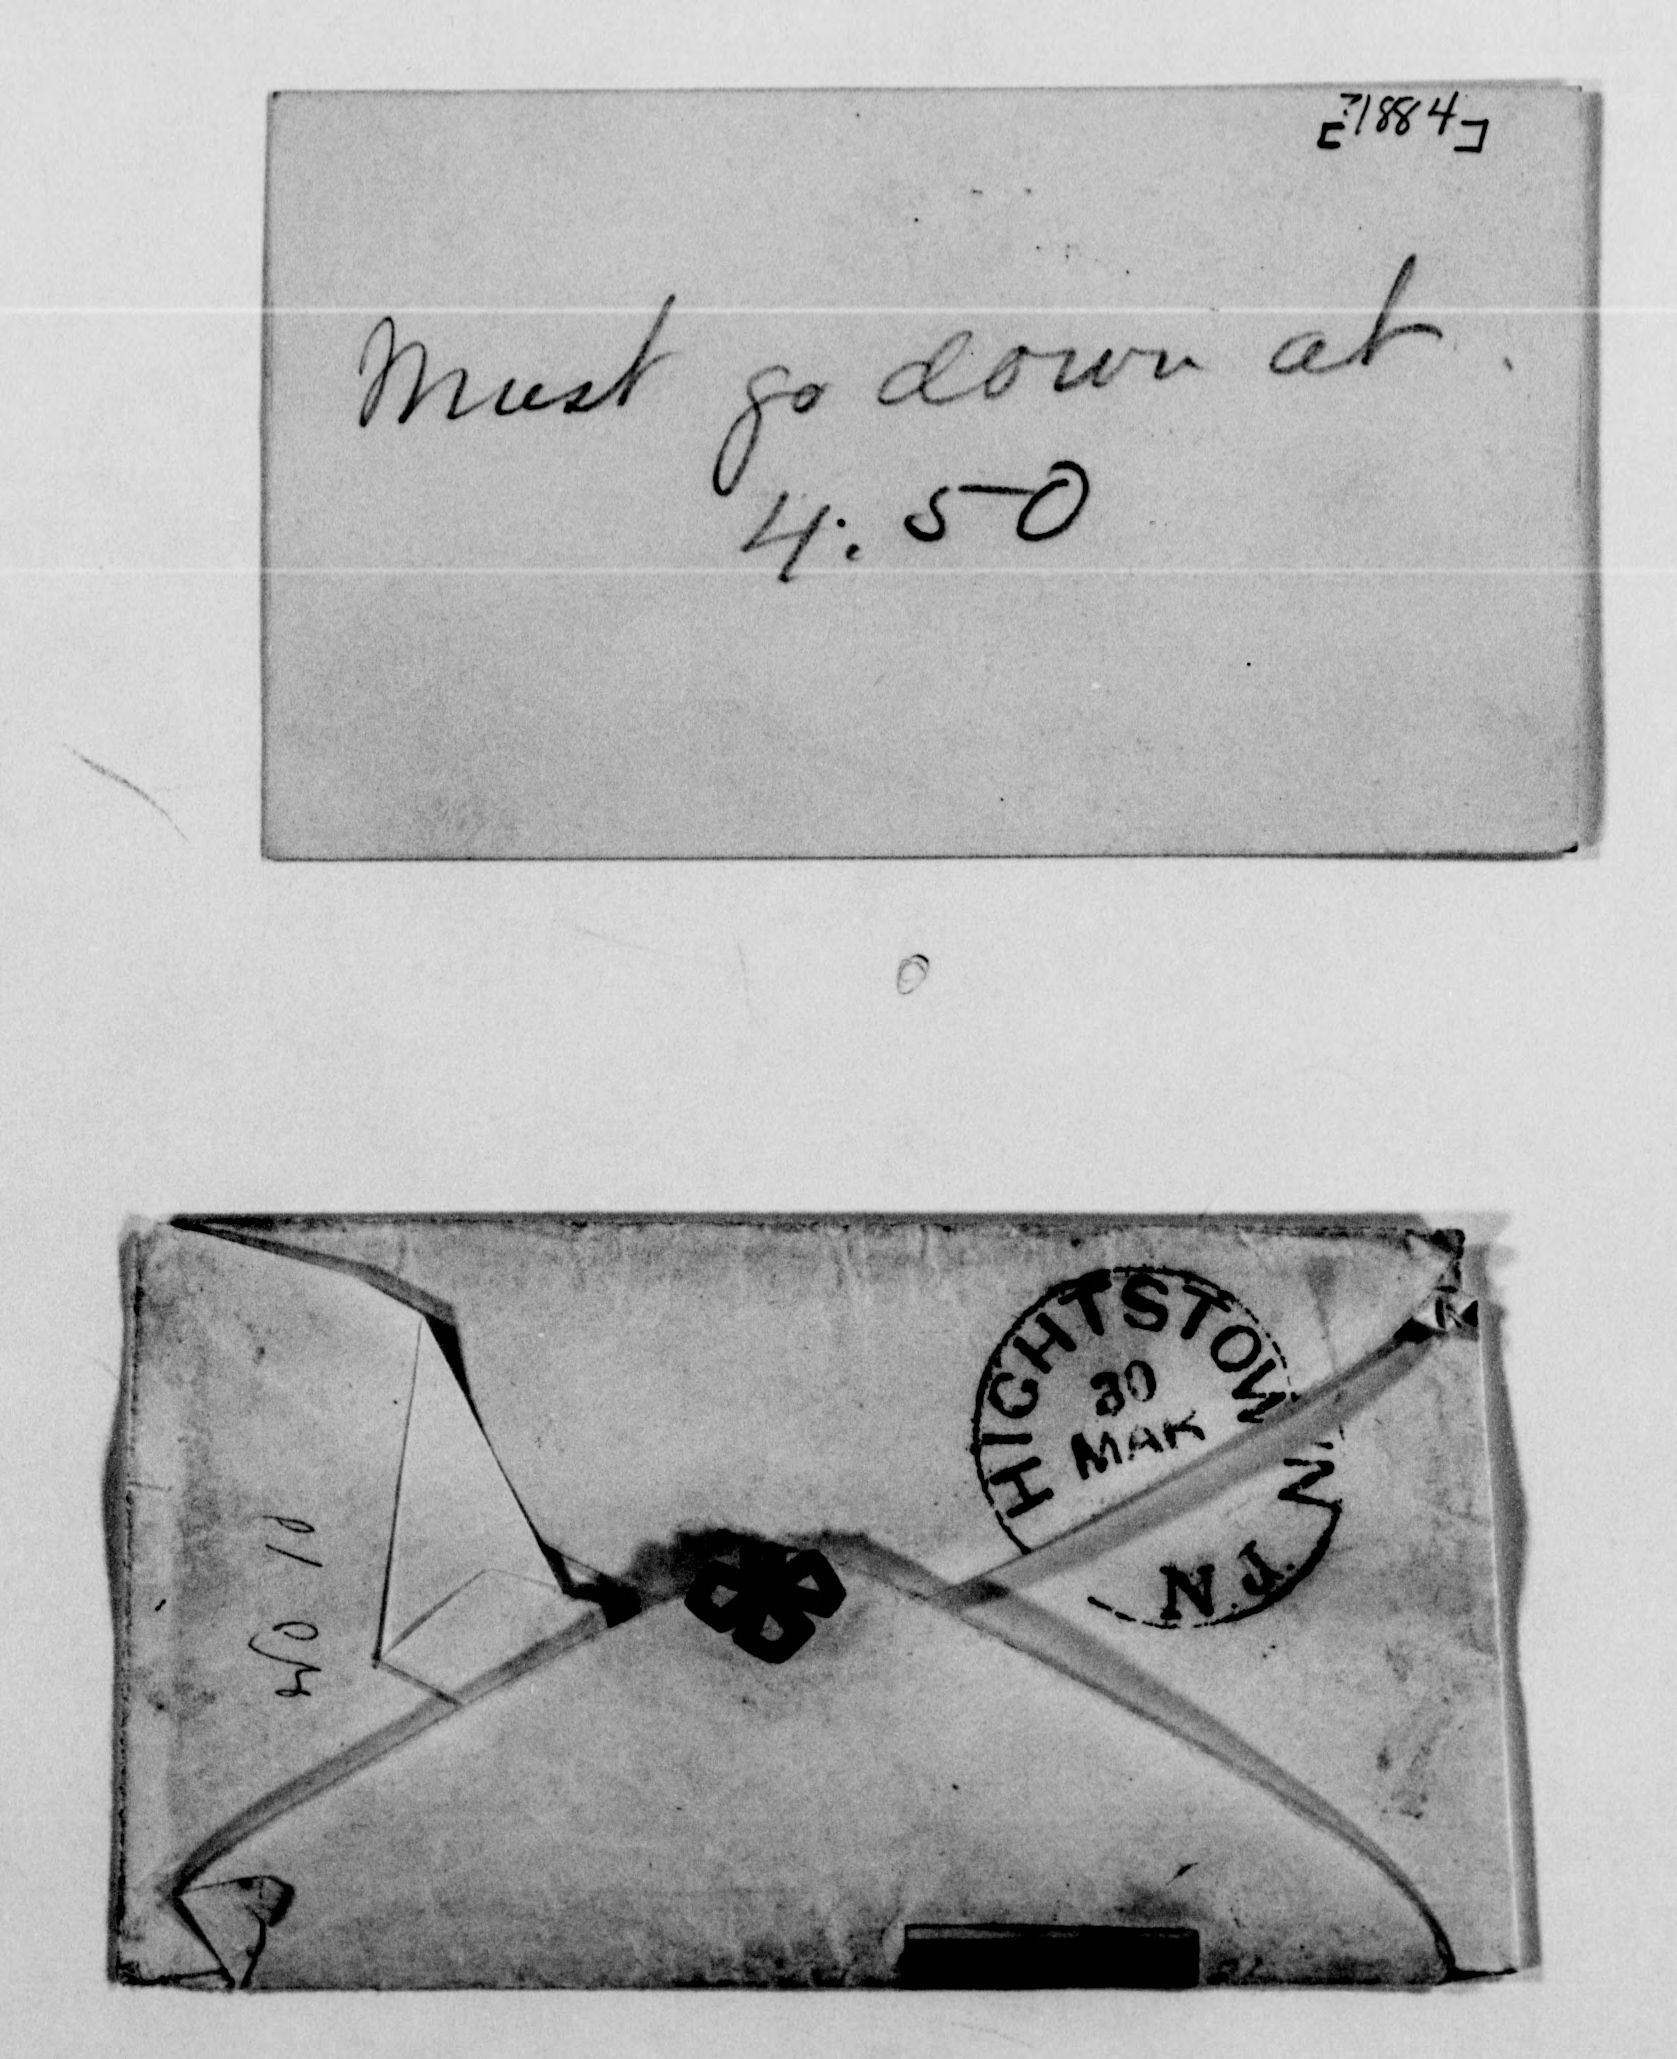 [?1884]
Must go down at
4:50
HIGHTSTOWN
30
MAR
N.J.